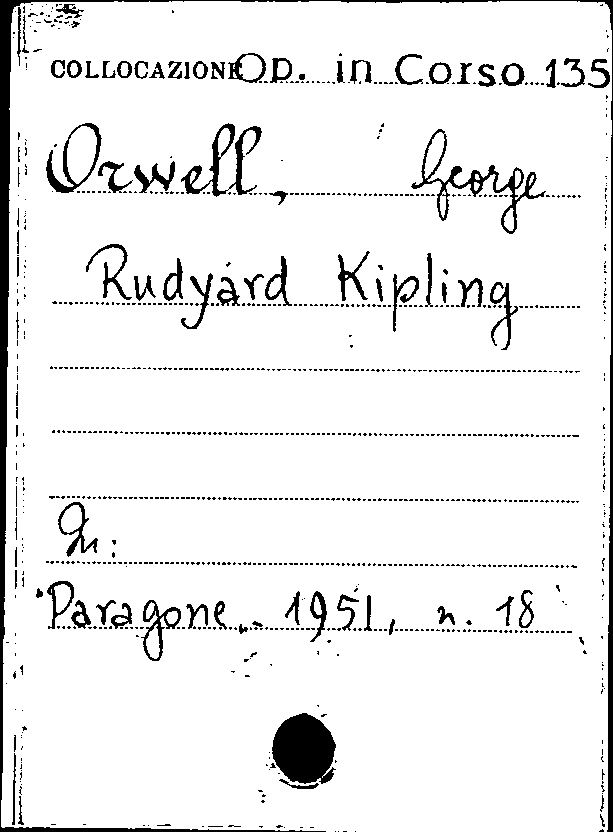 COLLOCAZIONE OP. in Corso 135
Orwell, George
Rudyard Kipling
In:
"Paragone", 1951, n. 18